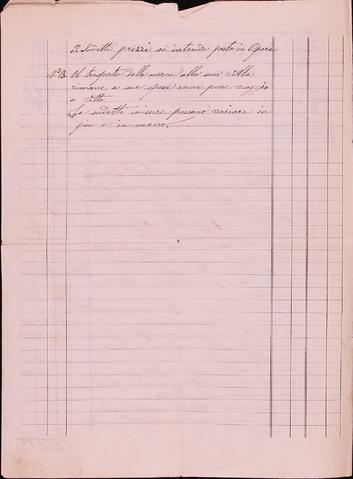 I sudetti prezzi si intende posto in Opera
N.B. Il trasporto delle merce alla sua Villa
rimane a sue spese come pure viaggio
e vitto.
Le sudette misure possono variare in
piu e in meno.